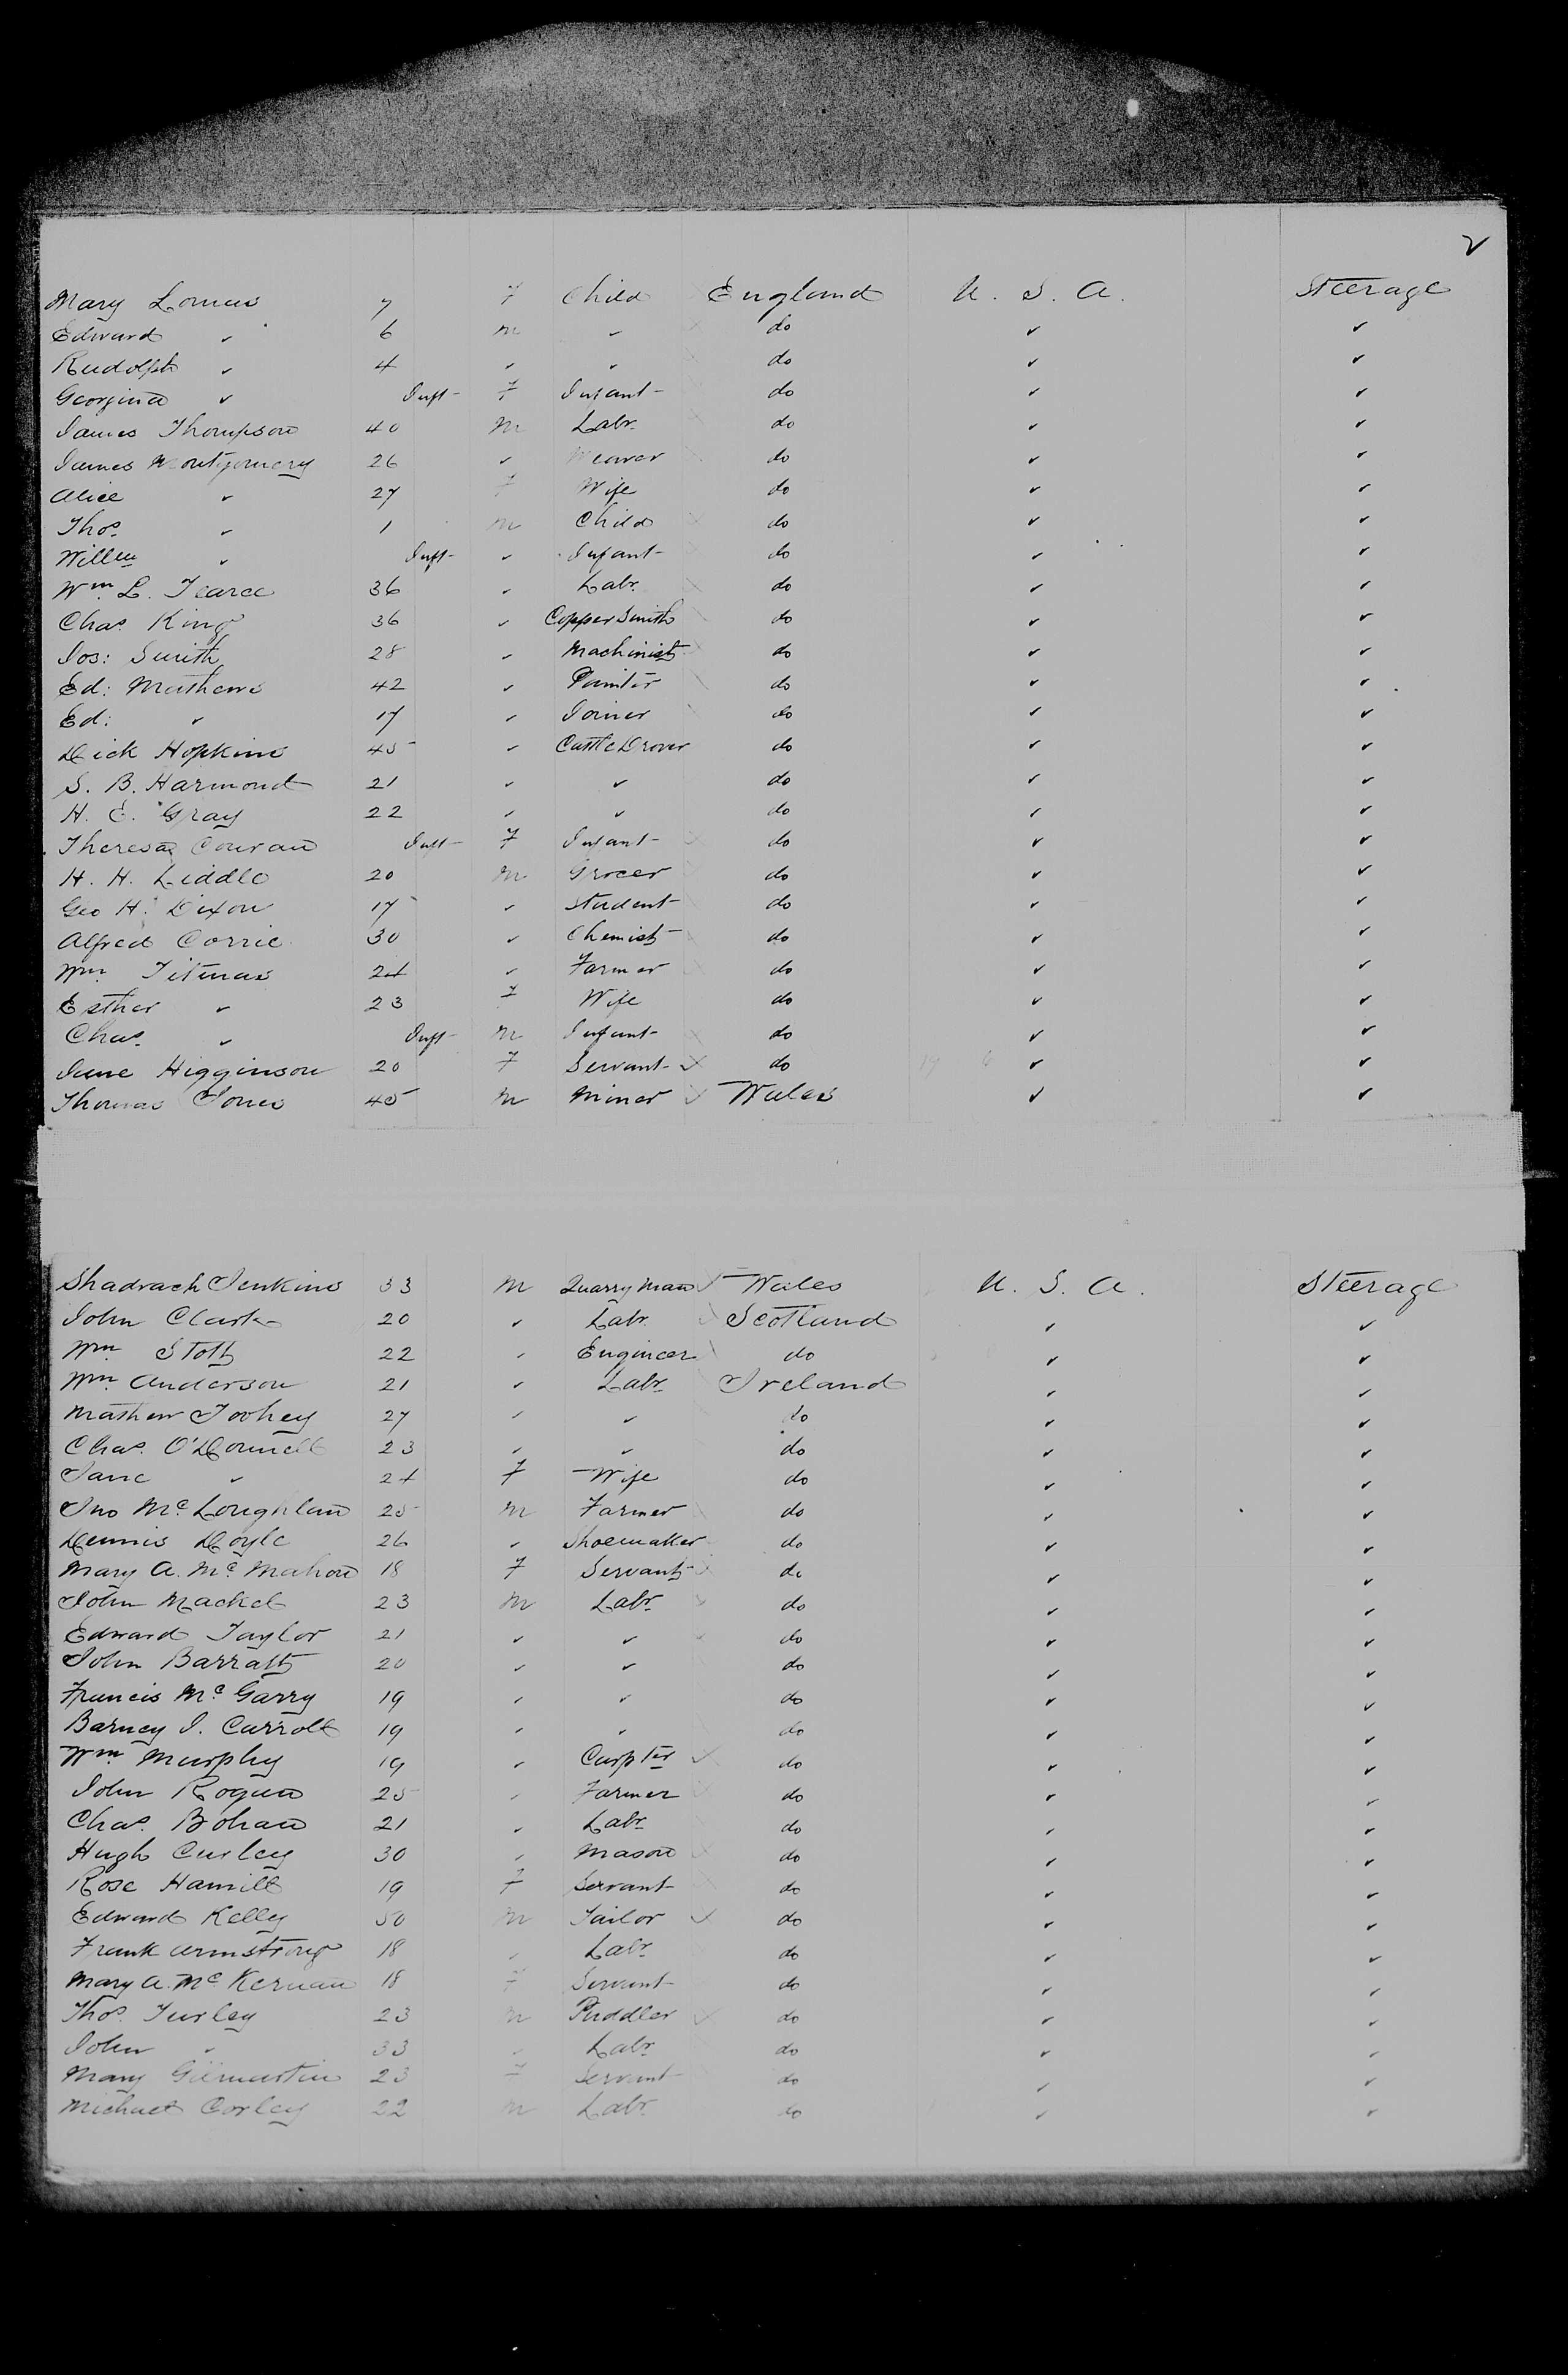 2
Mary Lomas 7 F Child England U. S. A. Steerage
Edward ✓ 6 m ✓ do ✓ ✓
Rudolph ✓ 4 ✓ ✓ do ✓ ✓
Georgina ✓ Inft F Infant do ✓ ✓
James Thompson 40 M Labr. do ✓ ✓
James Montgomery 26 ✓ Weaver do ✓ ✓
Alice ✓ 27 F Wife do ✓ ✓
Thos. ✓ 1 m Child do ✓ ✓
Willm ✓ Inft ✓ Infant do ✓ ✓
Wm. L. Pearce 36 ✓ Labr. do ✓ ✓
Chas. King 36 ✓ Copper Smith do ✓ ✓
Jos: Smith 28 ✓ Machinist do ✓ ✓
Ed: Mathews 42 ✓ Painter do ✓ ✓
Ed: ✓ 17 ✓ Joiner do ✓ ✓
Dick Hopkins 45 ✓ Cattle Drover do ✓ ✓
S. B. Harmond 21 ✓ ✓ do ✓ ✓
H. E. Gray 22 ✓ ✓ do ✓ ✓
Theresa Inft F Infant do ✓ ✓
H. H. Liddle 20 m Grocer do ✓ ✓
Geo H. Dixon 17 ✓ Student do ✓ ✓
Alfred Corrie 30 ✓ Chemist do ✓ ✓
Wm. Titmas 24 ✓ Farmer do ✓ ✓
Esther ✓ 23 F Wife do ✓ ✓
Chas. ✓ Inft m Infant do ✓ ✓
Jane Higginson 20 F Servant do ✓ ✓
Thomas Jones 45 m Miner Wales ✓ ✓
Shadrach Jenkins 33 M Quarry Man Wales U. S. A. Steerage
John Clark 20 ✓ Labr. Scotland ✓ ✓
Wm. Stott 22 ✓ Engineer do ✓ ✓
Wm. Anderson 21 ✓ Labr. Ireland ✓ ✓
Mathew Toohey 27 ✓ ✓ do ✓ ✓
Chas. O'Donnell 23 ✓ ✓ do ✓ ✓
Jane ✓ 24 F Wife do ✓ ✓
Jno McLoughlan 25 m Farmer do ✓ ✓
Dennis Doyle 26 ✓ Shoemaker do ✓ ✓
Mary A. McMahon 18 F Servant do ✓ ✓
John Mackel 23 m Labr. do ✓ ✓
Edward Taylor 21 ✓ ✓ do ✓ ✓
John Barratt 20 ✓ ✓ do ✓ ✓
Francis McGarry 19 ✓ ✓ do ✓ ✓
Barney J. Carroll 19 ✓ ✓ do ✓ ✓
Wm Murphy 19 ✓ Carpter do ✓ ✓
John Rogan 25 ✓ Farmer do ✓ ✓
Chas. Bohan 21 ✓ Labr. do ✓ ✓
Hugh Curley 30 ✓ Mason do ✓ ✓
Rose Hamill 19 F Servant do ✓ ✓
Edward Kelly 50 m Tailor do ✓ ✓
Frank Armstrong 18 ✓ Labr. do ✓ ✓
Mary A. McKernan 18 F Servant do ✓ ✓
Thos. Turley 23 m Puddler do ✓ ✓
John ✓ 33 ✓ Labr. do ✓ ✓
Mary Gilmartin 23 F Servant do ✓ ✓
Michael Corley 22 m Labr. do ✓ ✓